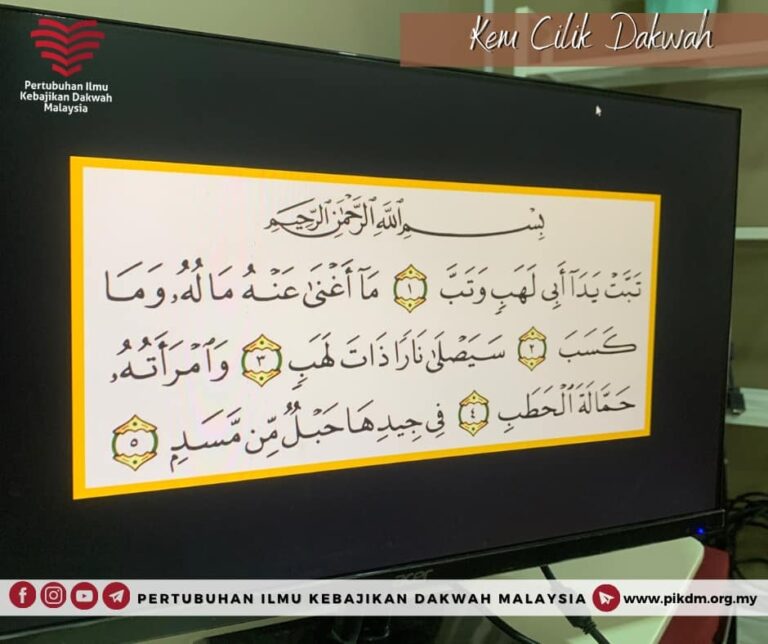 Kem Cilik Dakwah
Pertubuhan Ilmu
Kebajikan Dakwah
Malaysia
بِسْمِ اللَّهِ الرَّحْمَٰنِ الرَّحِيمِ
تَبَّتْ يَدَآ أَبِي لَهَبٍ وَتَبَّ ١ مَآ أَغْنَىٰ عَنْهُ مَالُهُۥ وَمَا
كَسَبَ ٢ سَيَصْلَىٰ نَارًا ذَاتَ لَهَبٍ ٣ وَٱمْرَأَتُهُۥ
حَمَّالَةَ ٱلْحَطَبِ ٤ فِي جِيدِهَا حَبْلٌ مِّن مَّسَدٍ ٥
acer
PERTUBUHAN ILMU KEBAJIKAN DAKWAH MALAYSIA www.pikdm.org.my